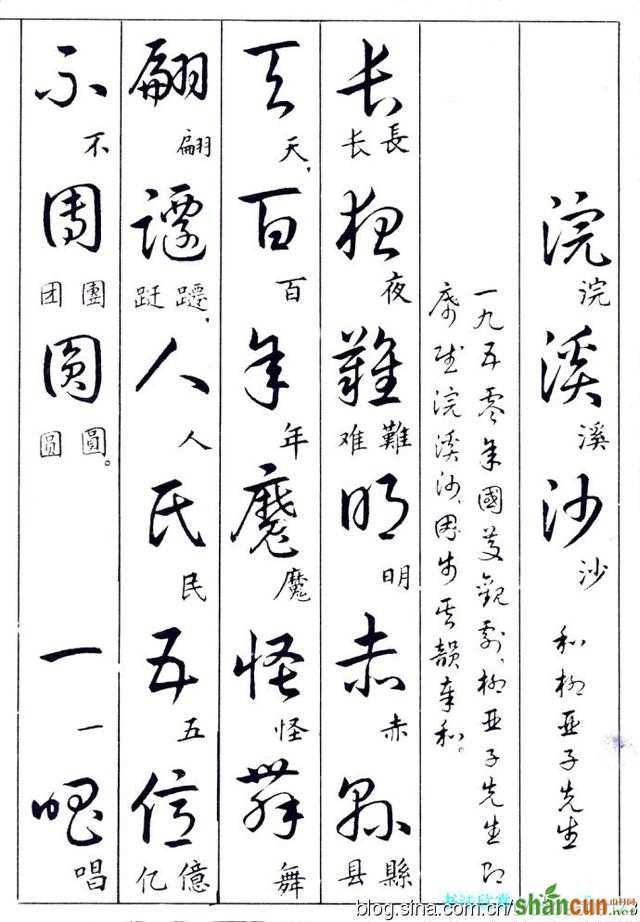 浣溪沙
浣溪沙 和柳亚子先生
一九五零年國慶觀劇,柳亞子先生即
席賦浣溪沙,因步其韻奉和。
長夜難明赤縣
長长 夜 難难 明 赤 縣县
天百年魔怪舞
天, 百 年 魔 怪 舞
翩躚人民五億
翩 躚跹, 人 民 五 億亿
不團圓 一唱
不 團团 圓圆。 一 唱
blog.sina.com.cn/
shancun
.net